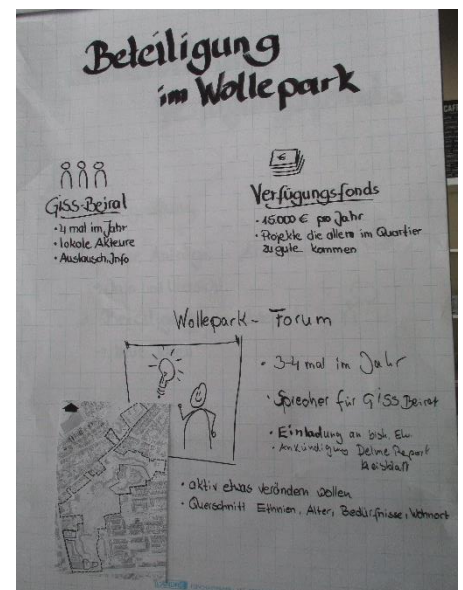 Beteiligung
im Wollepark
GiSS-Beirat
• 4 mal im Jahr
• lokale Akteure
• Austausch, Info
€
Verfügungsfonds
• 15.000 € pro Jahr
• Projekte die allen im Quartier
zugute kommen
Wollepark - Forum
• 3-4 mal im Jahr
• Sprecher für GiSS Beirat
• Einladung an bish. Ew.
• Ankündigung Delme Report
Kreisblatt
• aktiv etwas verändern wollen
• Querschnitt Ethnien, Alter, Bedürfnisse, Wohnort